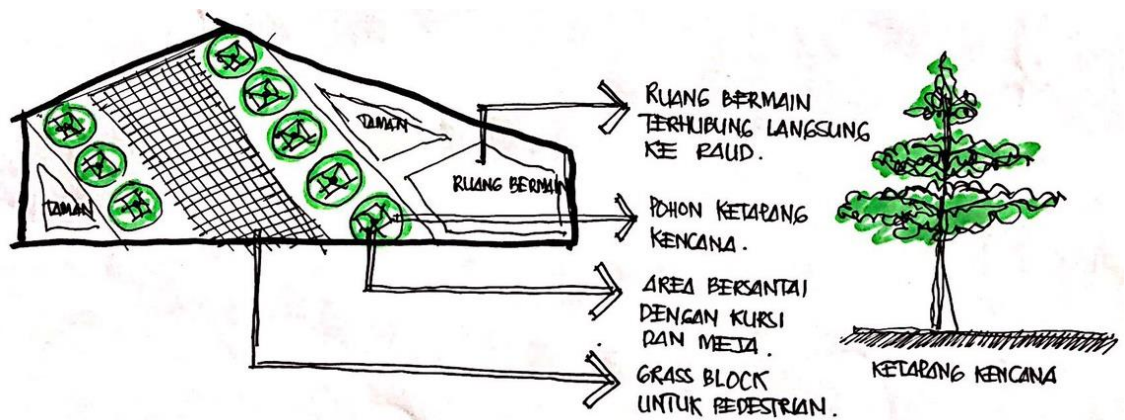 TAMAN
TAMAN
RUANG BERMAIN
RUANG BERMAIN
TERHUBUNG LANGSUNG
KE PAUD.
POHON KETAPANG
KENCANA.
AREA BERSANTAI
DENGAN KURSI
DAN MEJA.
GRASS BLOCK
UNTUK PEDESTRIAN.
KETAPANG KENCANA